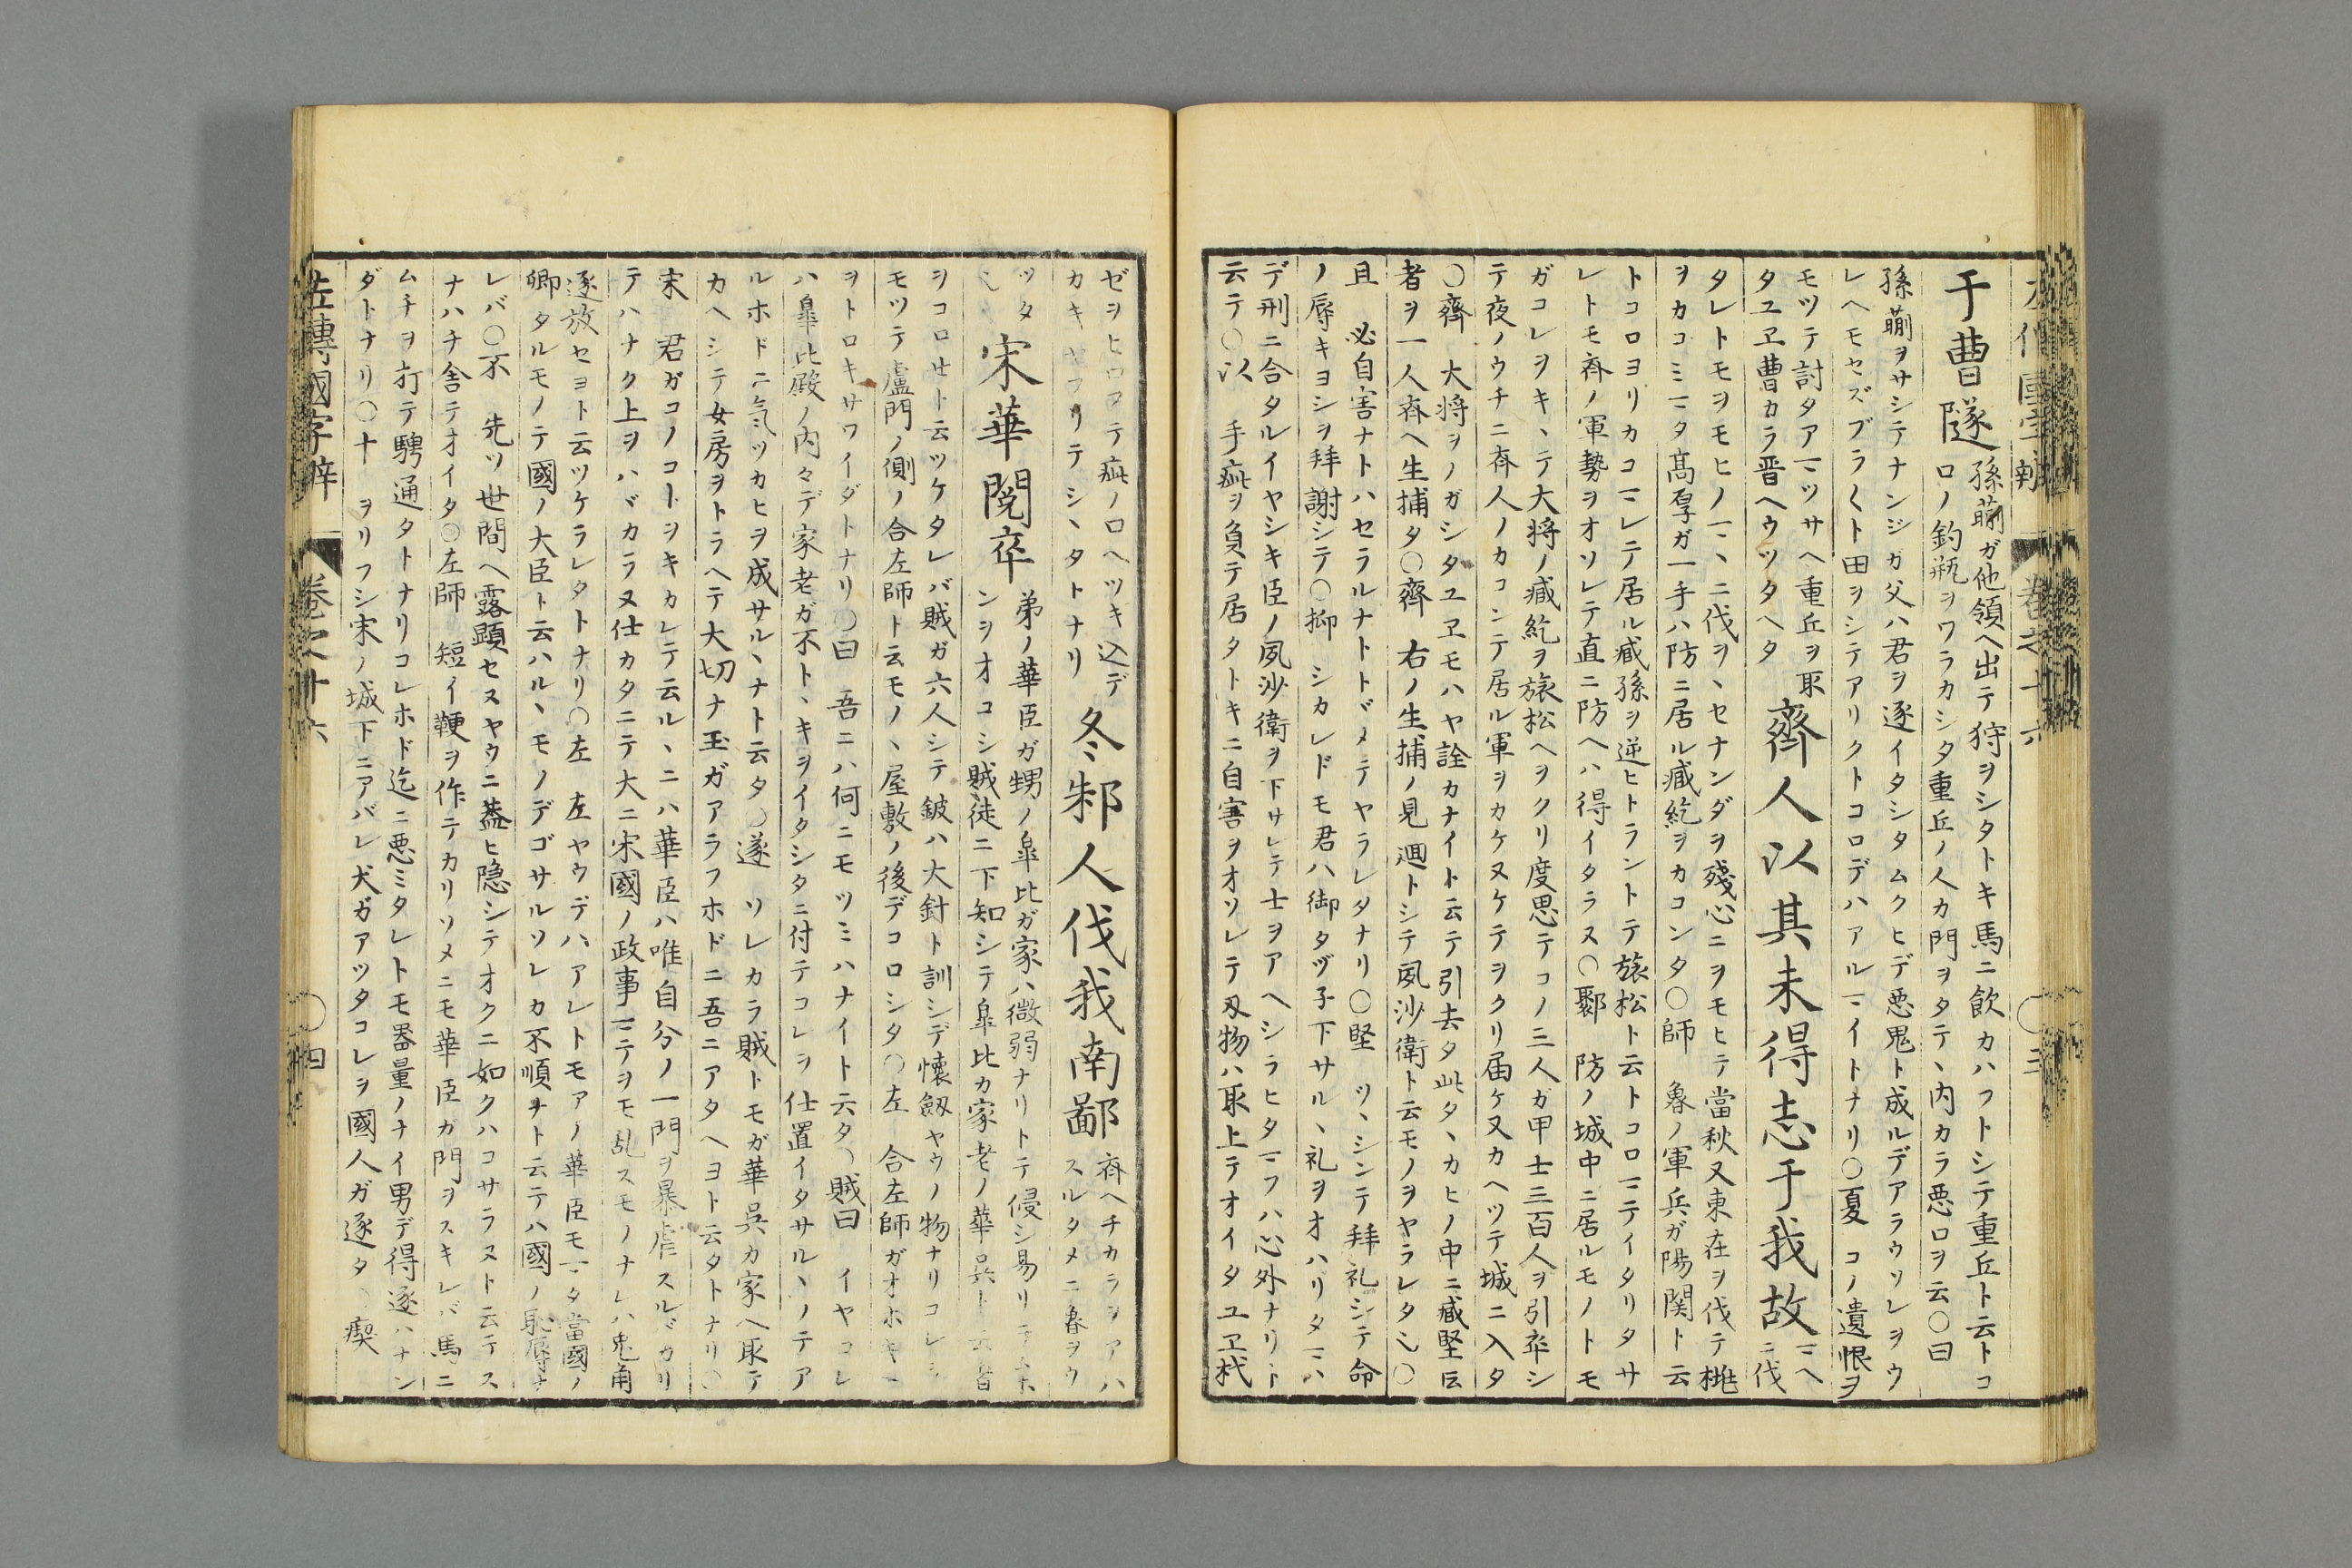 于曹隧
孫蒯ガ他領ヘ出テ狩ヲシタトキ馬ニ飲カハフトシテ重丘ト云トコ
ロノ釣瓶ヲワラカシタ重丘ノ人カ門ヲタテヽ内カラ悪口ヲ云〇曰
孫蒯ヲサシテナンジガ父ハ君ヲ逐イタシタムクヒデ悪鬼ト成ルデアラウソレヲウ
レヘモセズブラ〱ト田ヲシテアリクトコロデハアルマイトナリ〇夏 コノ遺恨ヲ
モツテ討タアマツサヘ重丘ヲ取
タユヱ曹カラ晋ヘウツタヘタ
齊人以其未得志于我故
マヘ
ニ伐
タレトモヲモヒノマヽニ伐ヲヽセナンダヲ殘心ニヲモヒテ當秋又東在ヲ伐テ桃
ヲカコミマタ髙厚ガ一手ハ防ニ居ル臧紇ヲカコンタ〇師 魯ノ軍兵ガ陽関ト云
トコロヨリカコマレテ居ル臧孫ヲ逆ヒトラントテ旅松ト云トコロマテイタリタサ
レトモ斉ノ軍勢ヲオソレテ直ニ防ヘハ得イタラス〇鄹 防ノ城中ニ居ルモノトモ
ガコレヲキヽテ大将ノ臧紇ヲ旅松ヘヲクリ度思テコノ三人ガ甲士三百人ヲ引卒シ
テ夜ノウチニ斉人ノカコンテ居ル軍ヲカケヌケテヲクリ届ケ又カヘツテ城ニ入タ
〇齊 大将ヲノガシタユヱモハヤ詮カナイト云テ引去タ此タヽカヒノ中ニ臧堅ト云
者ヲ一人斉ヘ生捕タ〇齊 右ノ生捕ノ見廻トシテ夙沙衛ト云モノヲヤラレタ〇
且 必自害ナトハセラルナトトドメテヤラレタナリ〇堅 ツヽシンテ拜礼シテ命
ノ辱キヨシヲ拜謝シテ〇抑 シカレドモ君ハ御タヅ子下サルヽ礼ヲオハリタマハ
デ刑ニ合タルイヤシキ臣ノ夙沙衛ヲ下サレテ士ヲアヘシラヒタマフハ心外ナリト
云テ〇以 手疵ヲ負テ居タトキニ自害ヲオソレテ刃物ハ取上テオイタユヱ杙
ゼヲヒロフテ疵ノロヘツキ込デ
カキヤフリテシヽタトナリ
冬邾人伐我南鄙
斉ヘチカラヲアハ
スルタメニ魯ヲウ
ツタ
宋華閲卒
弟ノ華臣ガ甥ノ皐比ガ家ハ微弱ナリトテ侵シ易リテホ
ンヲオコシ賊徒ニ下知シテ皐比カ家老ノ華呉ト云者
ヲコロセト云ツケタレバ賊ガ六人シテ鈹ハ大針ト訓シデ懐劔ヤウノ物ナリコレヲ
モツテ盧門ノ側ノ合左師ト云モノヽ屋敷ノ後デコロシタ〇左 合左師ガオホキニ
ヲトロキサワイダトナリ〇曰 吾ニハ何ニモツミハナイト云タ〇賊曰 イヤコレ
ハ皐比殿ノ内々デ家老ガ不トヽキヲイタシタニ付テコレヲ仕置イタサルヽノテア
ルホドニ気ツカヒヲ成サルヽナト云タ〇遂 ソレカラ賊トモガ華呉カ家ヘ取テ
カヘシテ女房ヲトラヘテ大切ナ玉ガアラフホドニ吾ニアタヘヨト云タトナリ〇
宋 君ガコノコトヲキカレテ云ルヽニハ華臣ハ唯自分ノ一門ヲ暴虐スルバカリ
テハナク上ヲハバカラヌ仕カタニテ大ニ宋國ノ政事マテヲモ乱スモノナレハ兎角
逐放セヨト云ツケラレタトナリ〇左 左ヤウデハアレトモアノ華臣モマタ當國ノ
卿タルモノテ國ノ大臣ト云ハルヽモノデゴサルソレカ不順ナト云テハ國ノ恥辱ナ
レバ〇不 先ツ世間ヘ露顕セヌヤウニ蓋ヒ隠シテオクニ如クハコサラヌト云テス
ナハチ舎テオイタ〇左師 短イ鞭ヲ作テカリソメニモ華臣ガ門ヲスキレバ馬ニ
ムチヲ打テ騁通タトナリコレホド迄ニ悪ミタレトモ器量ノナイ男デ得逐ハナン
ダトナリ〇十 ヲリフシ宋ノ城下ニアバレ犬ガアツタコレヲ國人ガ逐タ〇瘈
左傳國字辯 卷之十六 〇四